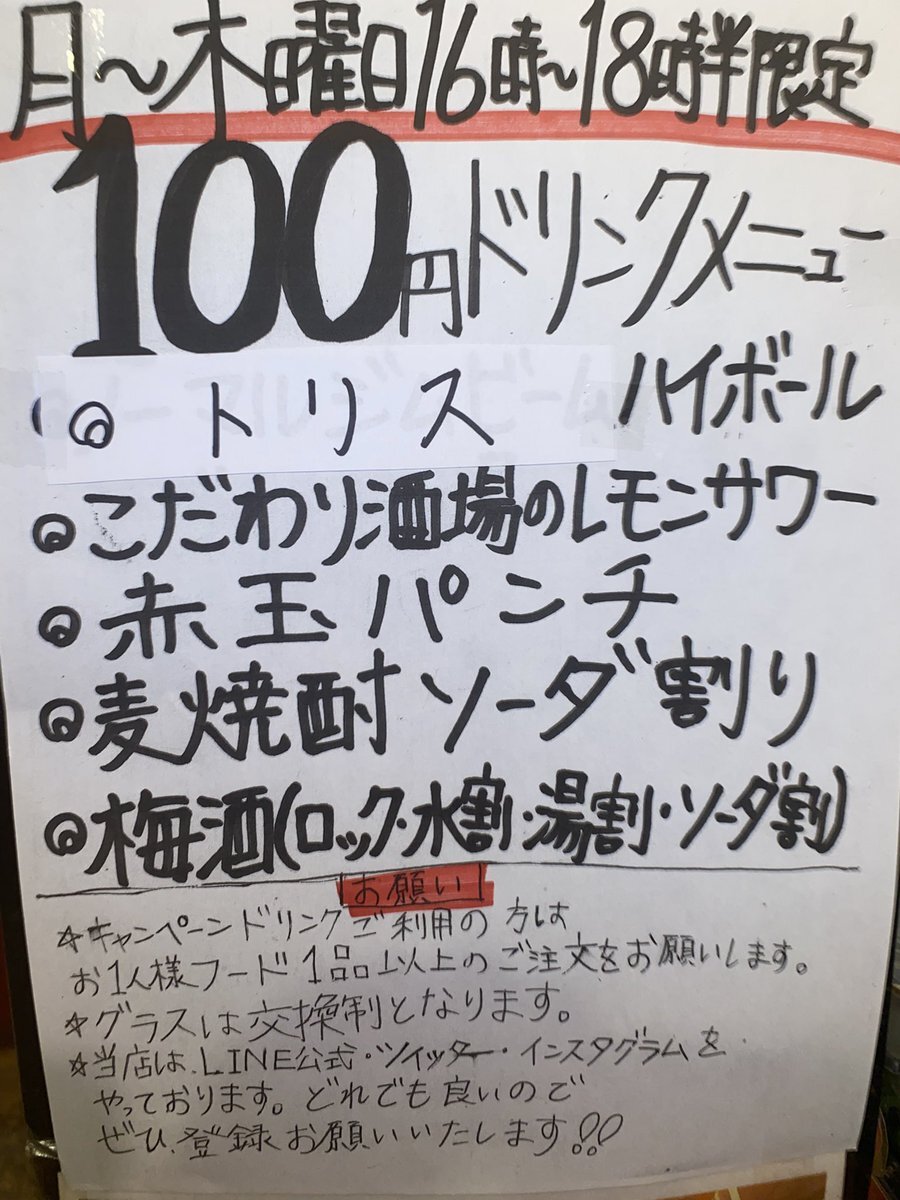 月〜木曜日16時〜18時半限定
100円ドリンクメニュー
◎ トリス ハイボール
◎こだわり酒場のレモンサワー
◎赤玉パンチ
◎麦焼酎ソーダ割り
◎梅酒(ロック・水割・湯割・ソーダ割)
お願い
☆キャンペーンドリンクご利用の方は
お1人様フード1品以上のご注文をお願いします。
☆グラスは交換制となります。
☆当店は、LINE公式・ツイッター・インスタグラムを
やっております。どれでも良いので
ぜひ、登録お願いいたします!!